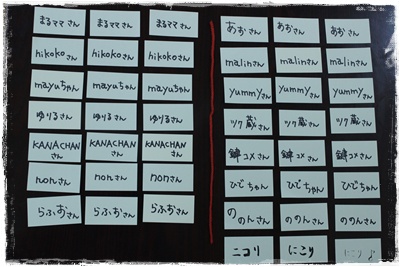 まるママさん まるママさん まるママさん
hikokoさん hikokoさん hikokoさん
mayuちゃん mayuちゃん mayuちゃん
ゆりるさん ゆりるさん ゆりるさん
KANACHANさん KANACHANさん KANACHANさん
nonさん nonさん nonさん
らふおさん らふおさん らふおさん
あおさん あおさん あおさん
malinさん malinさん malinさん
yummyさん yummyさん yummyさん
ツク蔵さん ツク蔵さん ツク蔵さん
コメさん コメさん コメさん
ひでちゃん ひでちゃん ひでちゃん
ののんさん ののんさん ののんさん
ニコリ にこり にこり♪